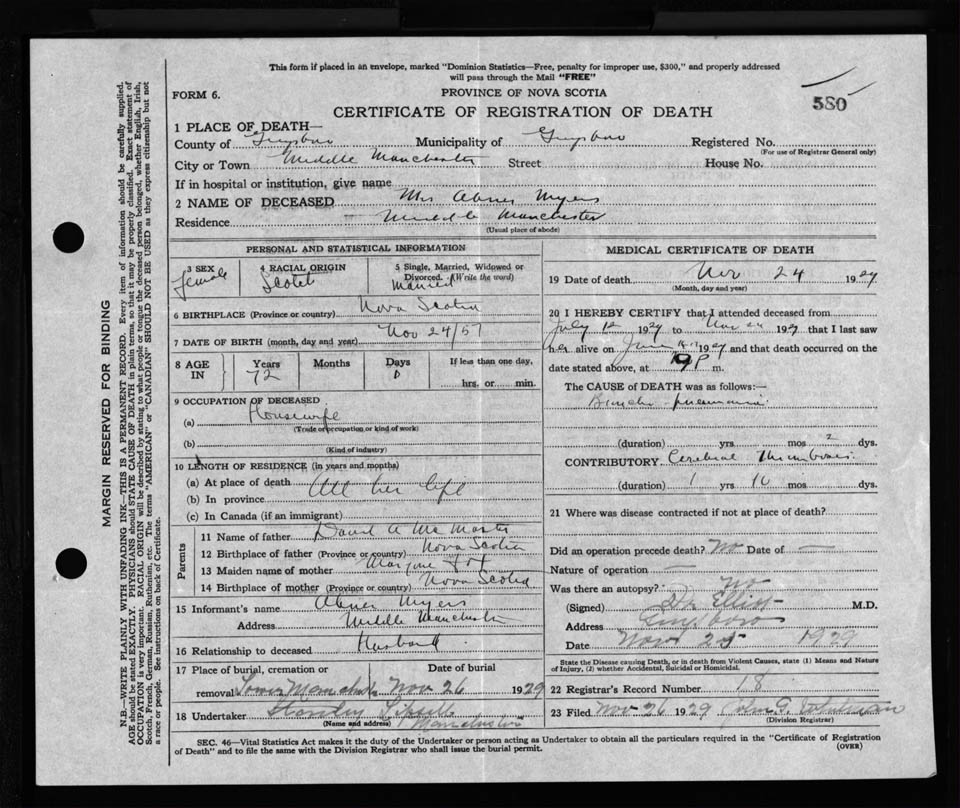 This form if placed in an envelope, marked "Dominion Statistics—Free, penalty for improper use, $300," and properly addressed
will pass through the Mail "FREE"
FORM 6.
PROVINCE OF NOVA SCOTIA
580
CERTIFICATE OF REGISTRATION OF DEATH
1 PLACE OF DEATH—
County of Guysboro Municipality of Guysboro Registered No.
(For use of Registrar General only)
City or Town Middle Manchester Street House No.
If in hospital or institution, give name
2 NAME OF DECEASED Mrs Abner Myers
Residence Middle Manchester
(Usual place of abode)
PERSONAL AND STATISTICAL INFORMATION
3 SEX Female 4 RACIAL ORIGIN Scotch 5 Single, Married, Widowed or Divorced. (Write the word) Married
6 BIRTHPLACE (Province or country) Nova Scotia
7 DATE OF BIRTH (month, day and year) Nov 24/57
8 AGE IN Years 72 Months Days 0 If less than one day, hrs. or min.
9 OCCUPATION OF DECEASED
(a) Housewife
(Trade or occupation or kind of work)
(b)
(Kind of industry)
10 LENGTH OF RESIDENCE (in years and months)
(a) At place of death All her life
(b) In province
(c) In Canada (if an immigrant)
Parents
11 Name of father David A McMaster
12 Birthplace of father (Province or country) Nova Scotia
13 Maiden name of mother
14 Birthplace of mother (Province or country) Nova Scotia
15 Informant's name Abner Myers
Address Middle Manchester
16 Relationship to deceased Husband
17 Place of burial, cremation or removal Lower Manchester Date of burial Nov 26 1929
18 Undertaker Stanley
(Name and address) Manchester
MEDICAL CERTIFICATE OF DEATH
19 Date of death Nov 24 1929
(Month, day and year)
20 I HEREBY CERTIFY that I attended deceased from
July 12 1929 to Nov 24 1929 that I last saw
her alive on June 1929 and that death occurred on the
date stated above, at 9 P m.
The CAUSE of DEATH was as follows:—
Broncho-pneumonia
(duration) yrs mos 2 dys.
CONTRIBUTORY Cerebral Thrombosis.
(duration) 1 yrs mos dys.
21 Where was disease contracted if not at place of death?
Did an operation precede death? No Date of —
Nature of operation —
Was there an autopsy? No
(Signed) Elliot M.D.
Address Guysboro
Date Nov 25 1929
State the Disease causing Death, or in death from Violent Causes, state (1) Means and Nature
of Injury, (2) whether Accidental, Suicidal or Homicidal.
22 Registrar's Record Number 18
23 Filed Nov 26 1929 John
(Division Registrar)
SEC. 46—Vital Statistics Act makes it the duty of the Undertaker or person acting as Undertaker to obtain all the particulars required in the "Certificate of Registration
of Death" and to file the same with the Division Registrar who shall issue the burial permit.
(OVER)
MARGIN RESERVED FOR BINDING
N.B.—WRITE PLAINLY WITH UNFADING INK—THIS IS A PERMANENT RECORD. Every item of information should be carefully supplied.
AGE should be stated EXACTLY. PHYSICIANS should STATE CAUSE OF DEATH in plain terms, so that it may be properly classified. Exact statement of
OCCUPATION is very important. RACIAL ORIGIN will be described by stating to what people or tongue the deceased person belonged, whether English, Irish,
Scotch, French, German, Russian, Ruthenian, etc. The terms "AMERICAN" or "CANADIAN" SHOULD NOT BE USED as they express citizenship but not
a race or people. See instructions on back of Certificate.